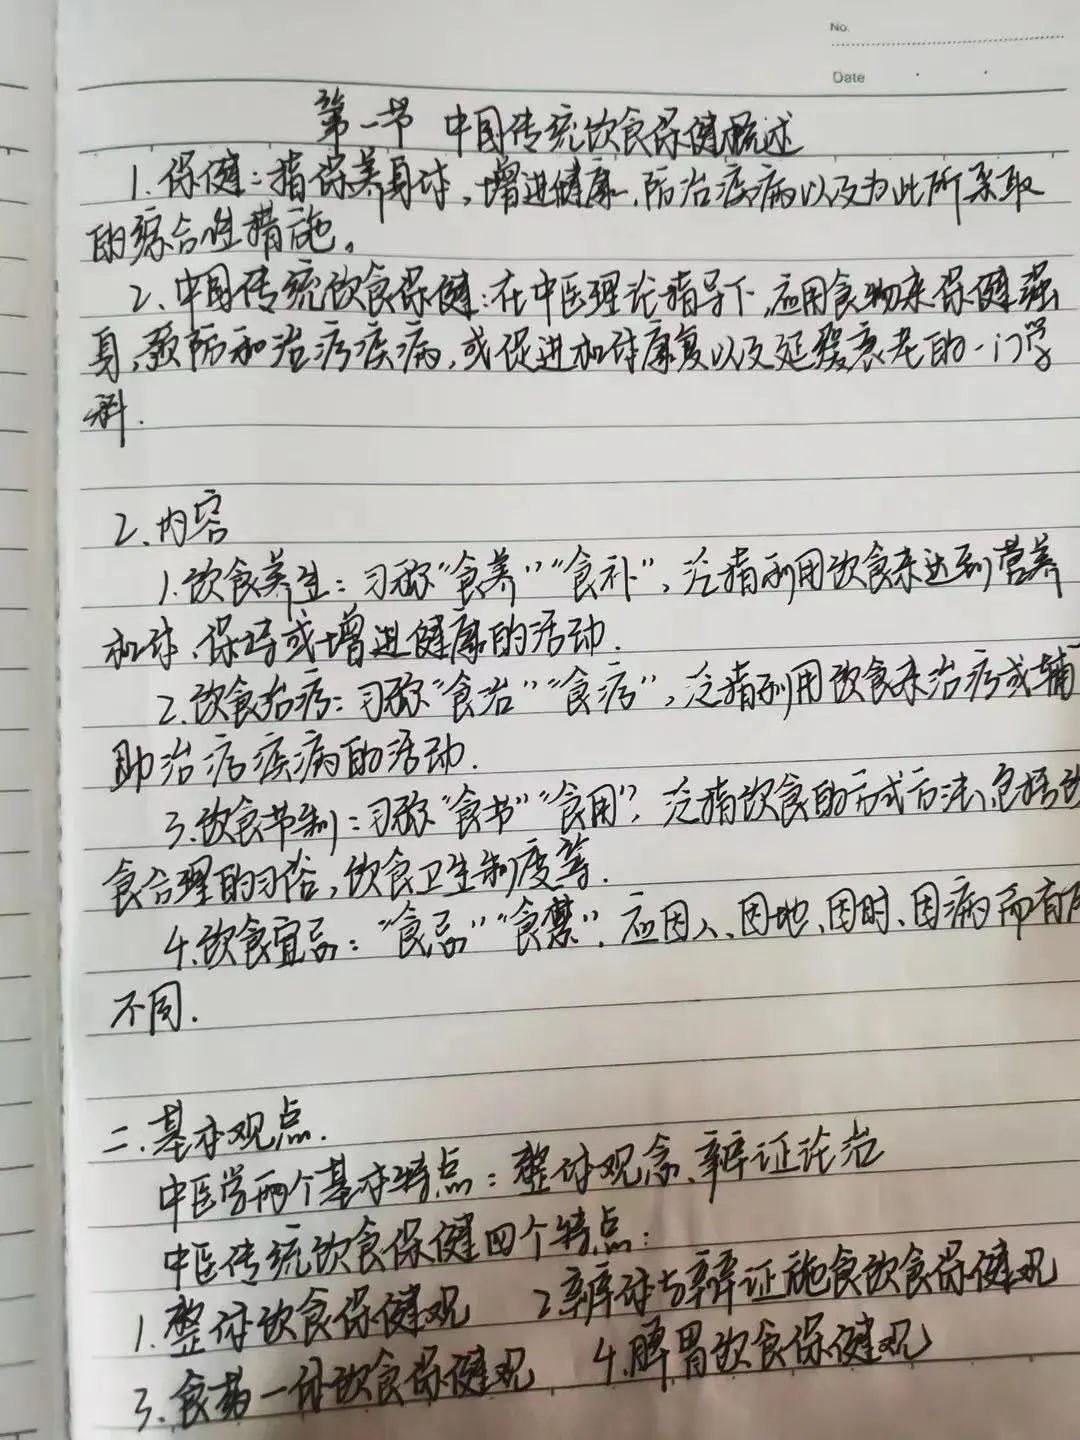 No.
Date
第一节 中国传统饮食保健概述
1.保健:指保养身体,增进健康、防治疾病以及为此所采取
的综合性措施。
2.中国传统饮食保健:在中医理论指导下,应用食物来保健强
身,预防和治疗疾病,或促进机体康复以及延缓衰老的一门学
科.
2.内容
1.饮食养生:习称“食养”“食补”,泛指利用饮食来达到营养
机体、保持或增进健康的活动.
2.饮食治疗:习称“食治”“食疗”,泛指利用饮食来治疗或辅
助治疗疾病的活动.
3.饮食节制:习称“食节”“食用”,泛指饮食的方式方法,包括
食合理的习俗,饮食卫生制度等.
4.饮食宜忌:“食忌”“食禁”,应因人、因地、因时、因病而有所
不同.
二.基本观点.
中医学两个基本特点:整体观念、辨证论治
中医传统饮食保健四个特点:
1.整体饮食保健观 2.辨体与辨证施食饮食保健观
3.食药一体饮食保健观 4.脾胃饮食保健观